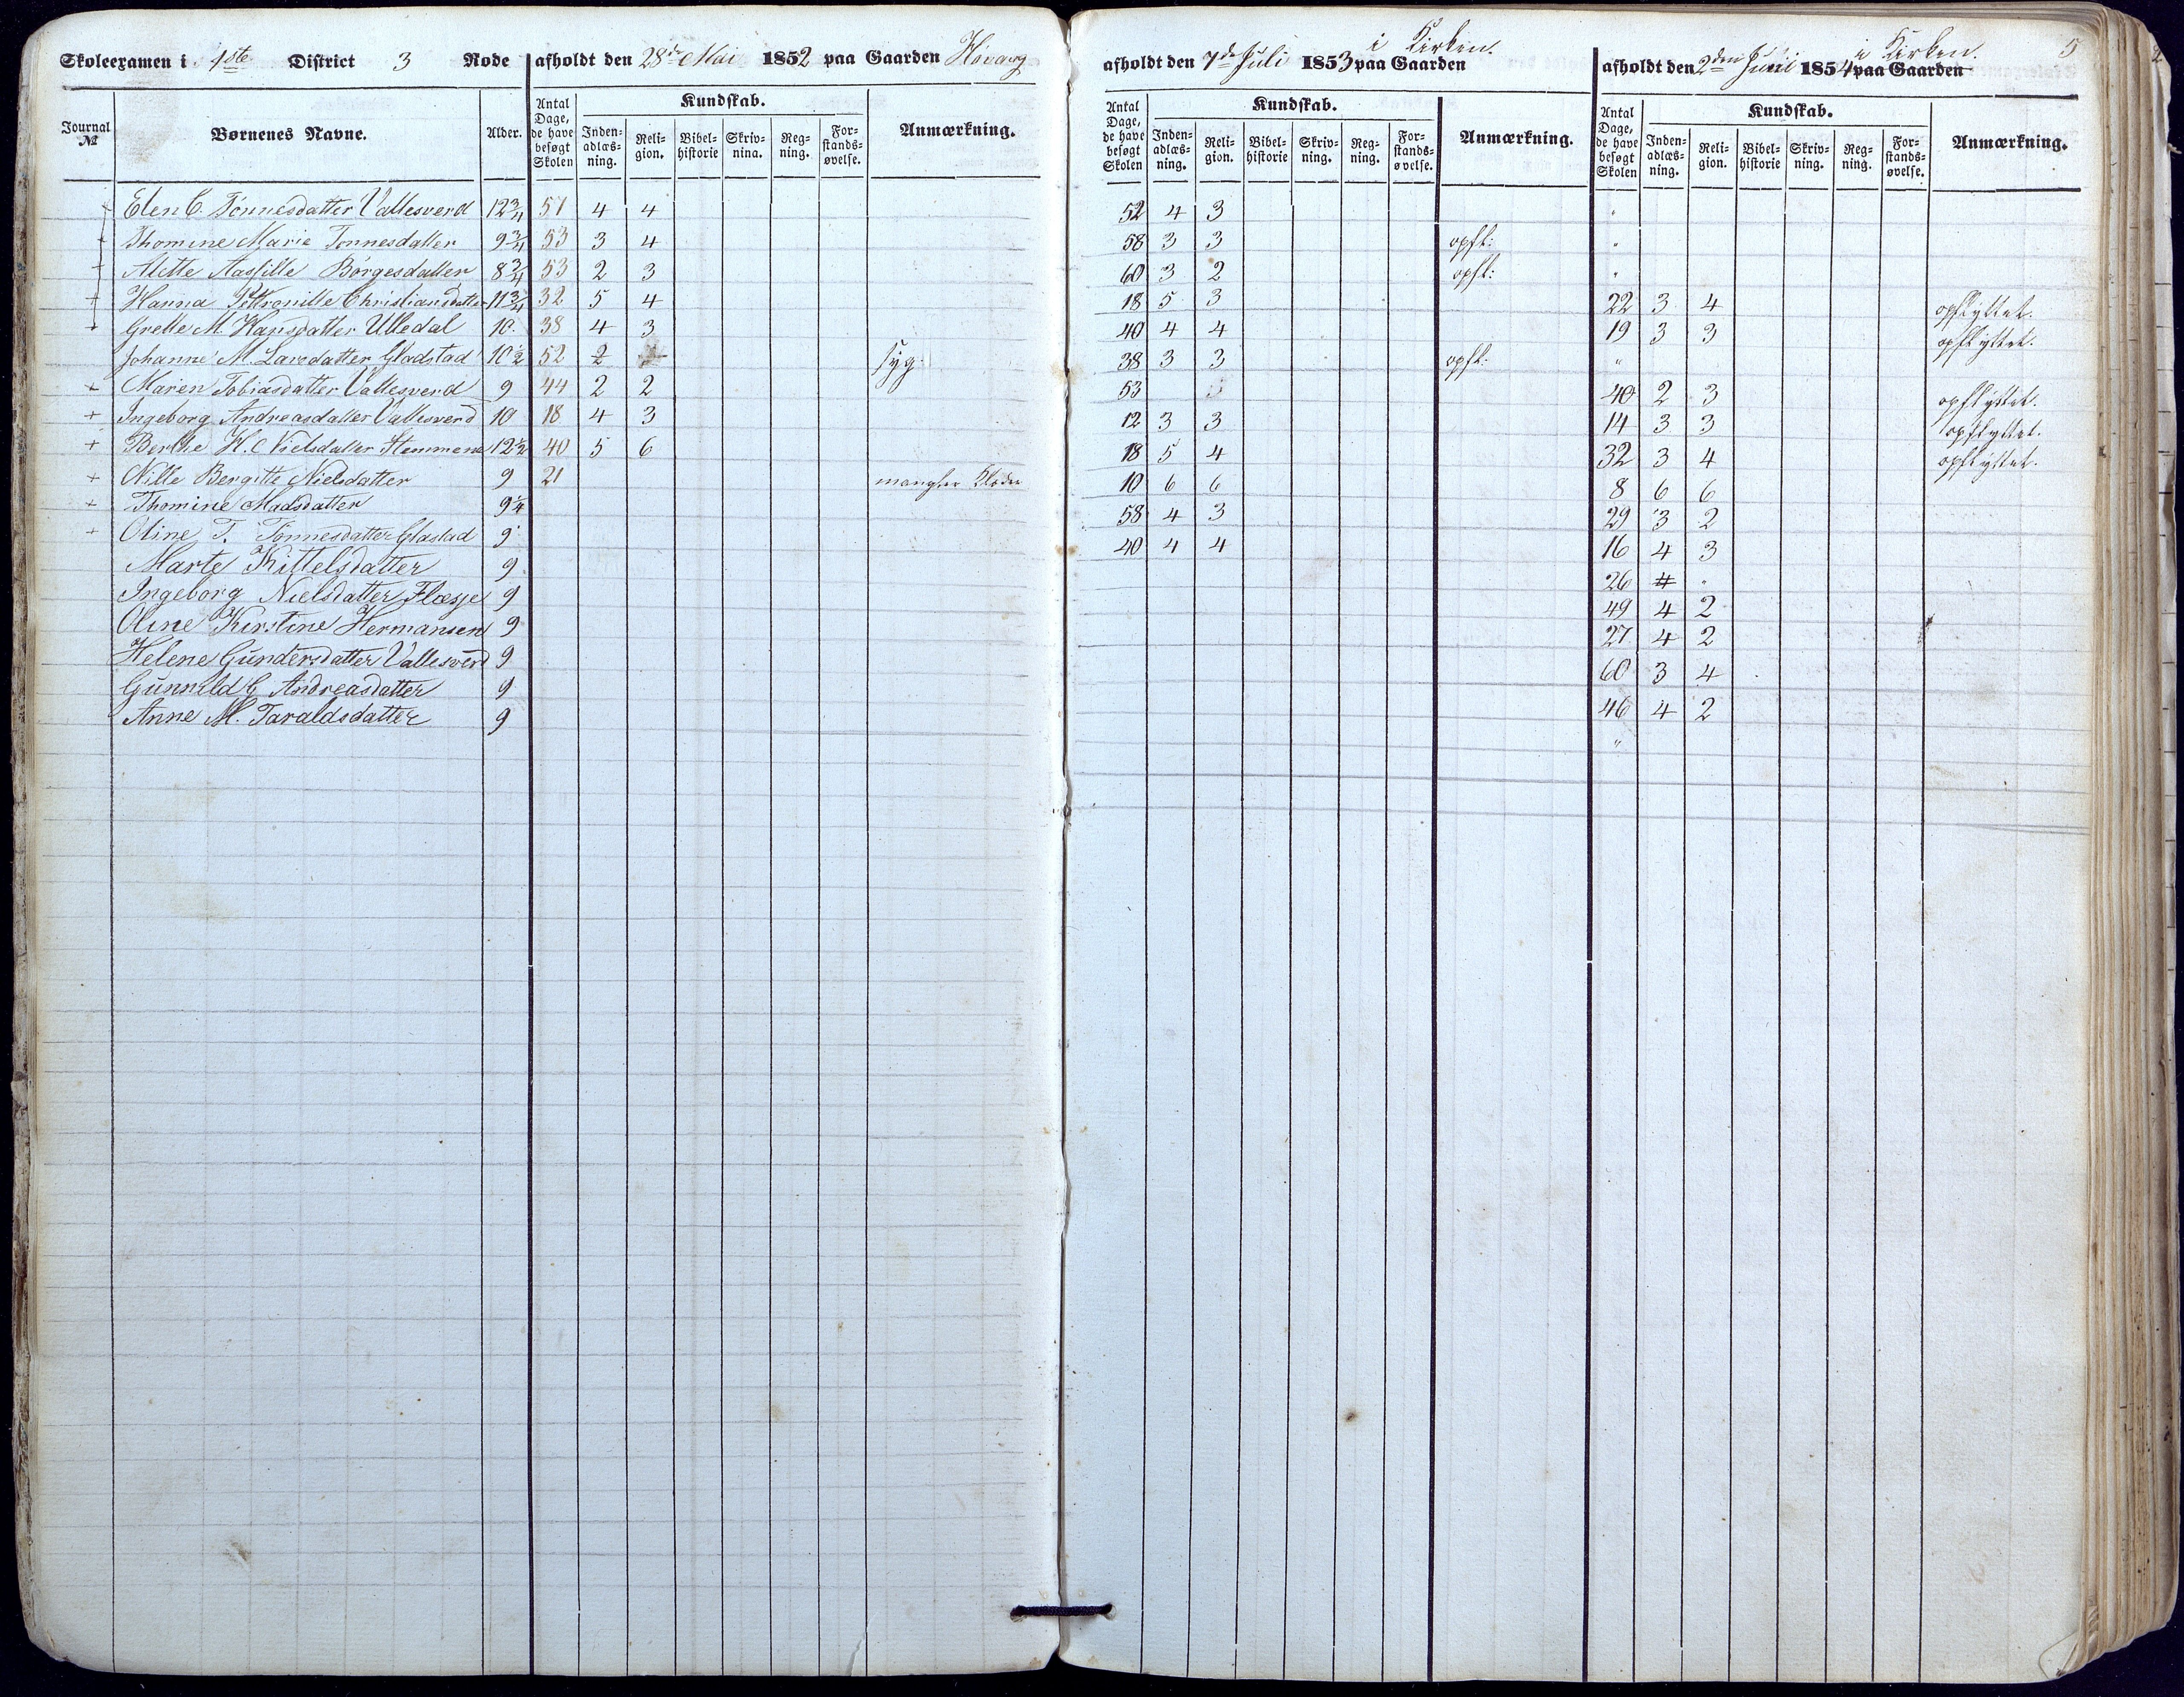 Skoleexamen i 1ste District 3 Rode afholdt den 28de Mai 1852 paa Gaarden Høvaag
Journal № Børnenes Navne. Alder. Antal Dage, de have besøgt Skolen Kundskab. Inden-adlæs-ning. Reli-gion. Bibel-historie Skriv-nina. Reg-ning. For-stands-øvelse. Anmærkning.
+ Elen C. Tønnesdatter Vallesverd 12 3/4 51 4 4
+ Thomine Marie Tønnesdatter 9 3/4 53 3 4
+ Alette Aassille Børgesdatter 8 3/4 53 2 3
+ Hanna Pettronille Christiansdatter 11 3/4 32 5 4
+ Grette M. Hansdatter Ulledal 10. 38 4 3
Johanne M. Larsdatter Gladstad 10 1/2 52 2 syg.
+ Maren Tobiasdatter Vallesverd 9 44 2 2
+ Ingeborg Andreasdatter Vallesverd 10 18 4 3
+ Berthe H. C Nielsdatter 12 1/2 40 5 6
+ Nille Bergitte Nielsdatter 9 21 mangler Klæder
+ Thomine Madsdatter 9 1/4
+ Oline T. Tønnesdatter Glastad 9
Marte Kittelsdatter 9.
Ingeborg Nielsdatter Flæsje 9
Oline Kirstine Hermansen 9
Helene Gundersdatter Vallesverd 9
Gunnild G Andreasdatter 9
Anne M. Taraldsdatter 9
afholdt den 7de Juli 1853 paa Gaarden i Kirken.
Antal Dage, de have besøgt Skolen Kundskab. Inden-adlæs-ning. Reli-gion. Bibel-historie Skriv-ning. Reg-ning. For-stands-øvelse. Anmærkning.
52 4 3
58 3 3 opfl:
60 3 2 opfl:
18 5 3
40 4 4
38 3 3 opfl:
53
12 3 3
18 5 4
10 6 6
58 4 3
40 4 4
afholdt den 2den Juni 1854 paa Gaarden i Kirken. 5
Antal Dage, de have besøgt Skolen Kundskab. Inden-adlæs-ning. Reli-gion. Bibel-historie Skriv-ning. Reg-ning. For-stands-øvelse. Anmærkning.
"
"
"
22 3 4 opflyttet.
19 3 3 opflyttet.
"
40 2 3 opflyttet.
14 3 3 opflyttet.
32 3 4 opflyttet.
8 6 6
29 3 2
16 4 3
26 4 "
49 4 2
27 4 2
60 3 4
46 4 2
"